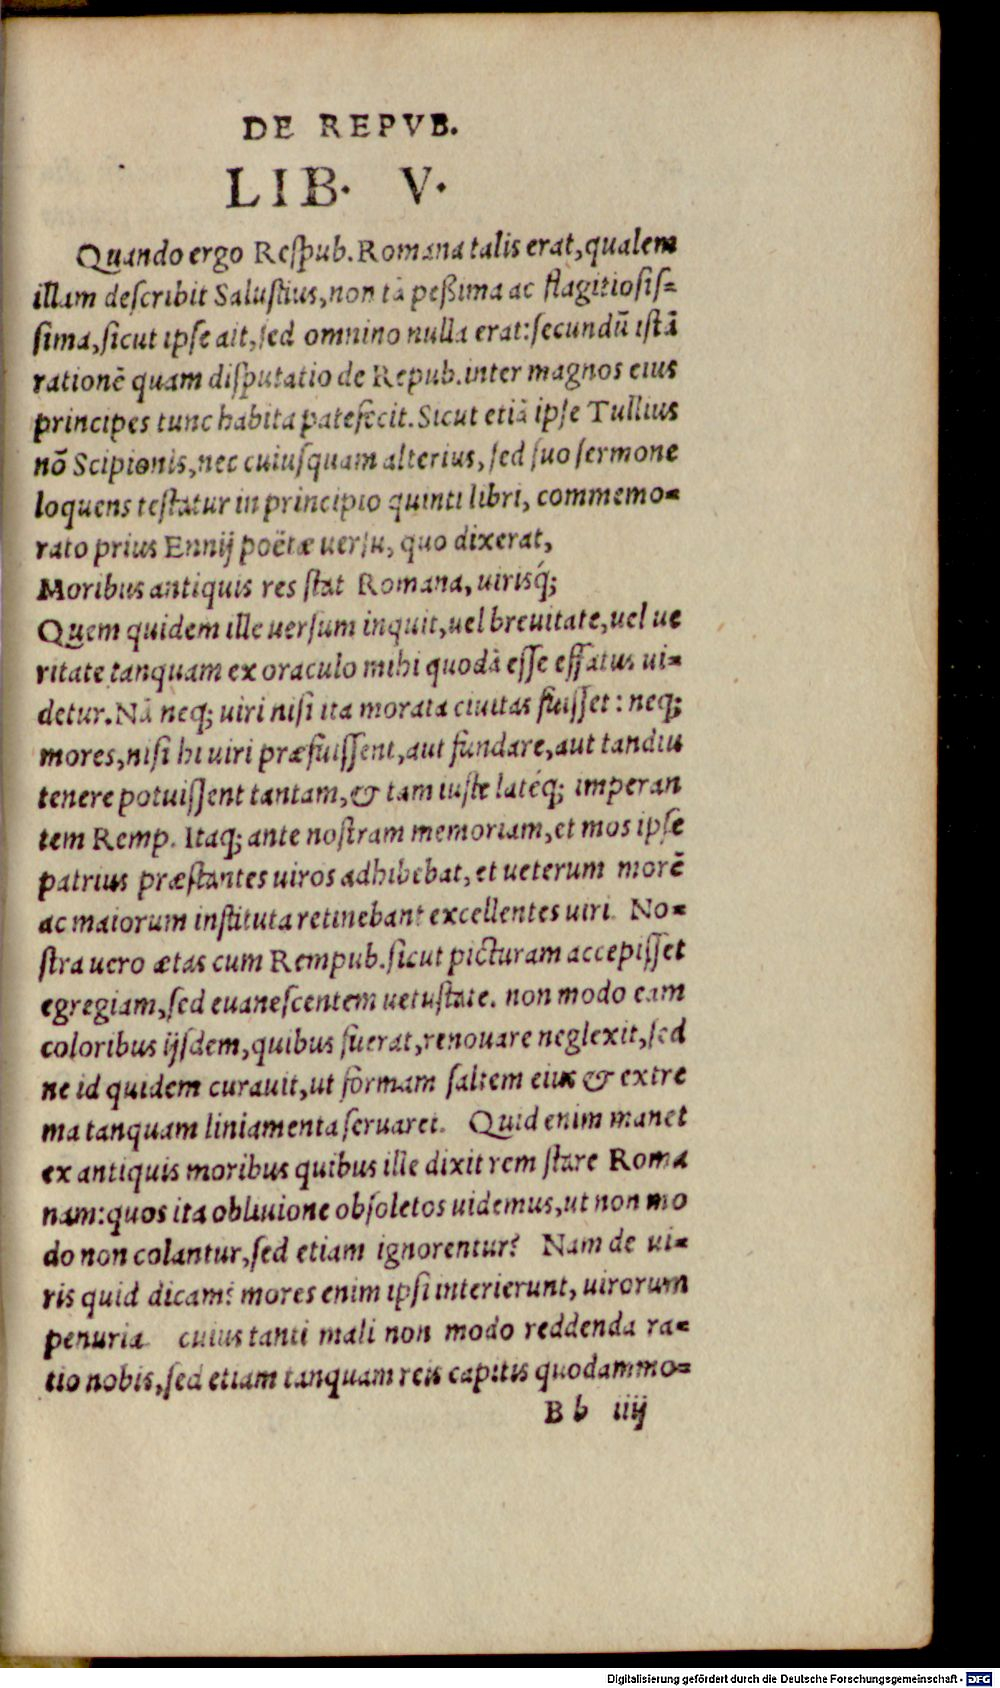 DE REPVB.
LIB. V.
Quando ergo Reſpub. Romana talis erat, qualem
illam deſcribit Saluſtius, non tā peßima ac flagitioſiſ=
ſima, ſicut ipſe ait, ſed omnino nulla erat: ſecundū iſtā
rationē quam diſputatio de Repub. inter magnos eius
principes tunc habita patefecit. Sicut etiā ipſe Tullius
nō Scipionis, nec cuiuſquam alterius, ſed ſuo ſermone
loquens teſtatur in principio quinti libri, commemo=
rato prius Ennij poëtæ uerſu, quo dixerat,
Moribus antiquis res ſtat Romana, uirisq́;
Quem quidem ille uerſum inquit, uel breuitate, uel ue
ritate tanquam ex oraculo mihi quodā eſſe effatus ui=
detur. Nā neq; uiri niſi ita morata ciuitas fuiſſet: neq;
mores, niſi hi uiri præfuiſſent, aut fundare, aut tandiu
tenere potuiſſent tantam, & tam iuſte latéq; imperan
tem Remp. Itaq; ante noſtram memoriam, et mos ipſe
patrius præſtantes uiros adhibebat, et ueterum morē
ac maiorum inſtituta retinebant excellentes uiri. No=
ſtra uero ætas cum Rempub. ſicut picturam accepiſſet
egregiam, ſed euaneſcentem uetuſtate. non modo eam
coloribus ijſdem, quibus fuerat, renouare neglexit, ſed
ne id quidem curauit, ut formam ſaltem eius & extre
ma tanquam liniamenta ſeruaret. Quid enim manet
ex antiquis moribus quibus ille dixit rem ſtare Roma
nam: quos ita obliuione obſoletos uidemus, ut non mo
do non colantur, ſed etiam ignorentur? Nam de ui=
ris quid dicam? mores enim ipſi interierunt, uirorum
penuria. cuius tanti mali non modo reddenda ra=
tio nobis, ſed etiam tanquam reis capitis quodammo=
B b iiij
Digitalisierung gefördert durch die Deutsche Forschungsgemeinschaft - DFG